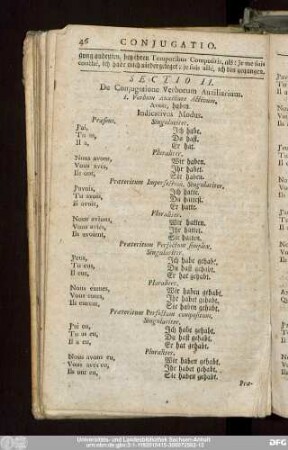 46 CONJUGATIO.
SECTIO II.
De Conjugatione Verborum Auxiliarium.
I. Verbum auxiliare Activum,
Avoir, haben.
Indicativus Modus.
Præsens. Singulariter.
J'ai, Ich habe.
Tu as, Du hast.
Il a, Er hat.
Pluraliter.
Nous avons, Wir haben.
Vous avés, Ihr habet.
Ils ont, Sie haben.
Præteritum Imperfectum. Singulariter.
J'avois, Ich hatte.
Tu avois, Du hattest.
Il avoit, Er hatte.
Pluraliter.
Nous avions, Wir hatten.
Vous aviés, Ihr hattet.
Ils avoient, Sie hatten.
Præteritum Perfectum simplex.
Singulariter.
J'eus, Ich habe gehabt.
Tu eus, Du hast gehabt.
Il eut, Er hat gehabt.
Pluraliter.
Nous eumes, Wir haben gehabt.
Vous eutes, Ihr habet gehabt.
Ils eurent, Sie haben gehabt.
Præteritum Perfectum compositum.
Singulariter.
J'ai eu, Ich habe gehabt.
Tu as eu, Du hast gehabt.
Il a eu, Er hat gehabt.
Pluraliter.
Nous avons eu, Wir haben gehabt.
Vous avés eu, Ihr habet gehabt.
Ils ont eu, Sie haben gehabt.
Præ-
Universitäts- und Landesbibliothek Sachsen-Anhalt
DFG